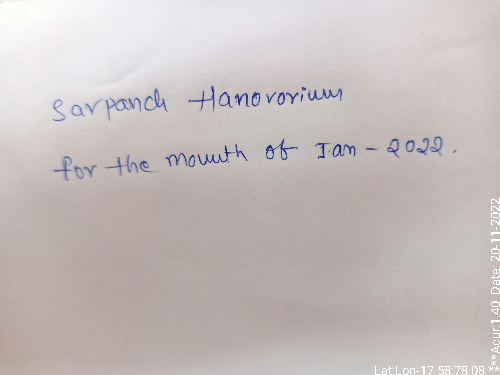 Sarpanch Hanovorium
for the mounth of Jan - 2022.
Lat Lon-17.58:78.08
***Acur:1.40 Date: 20-11-2022